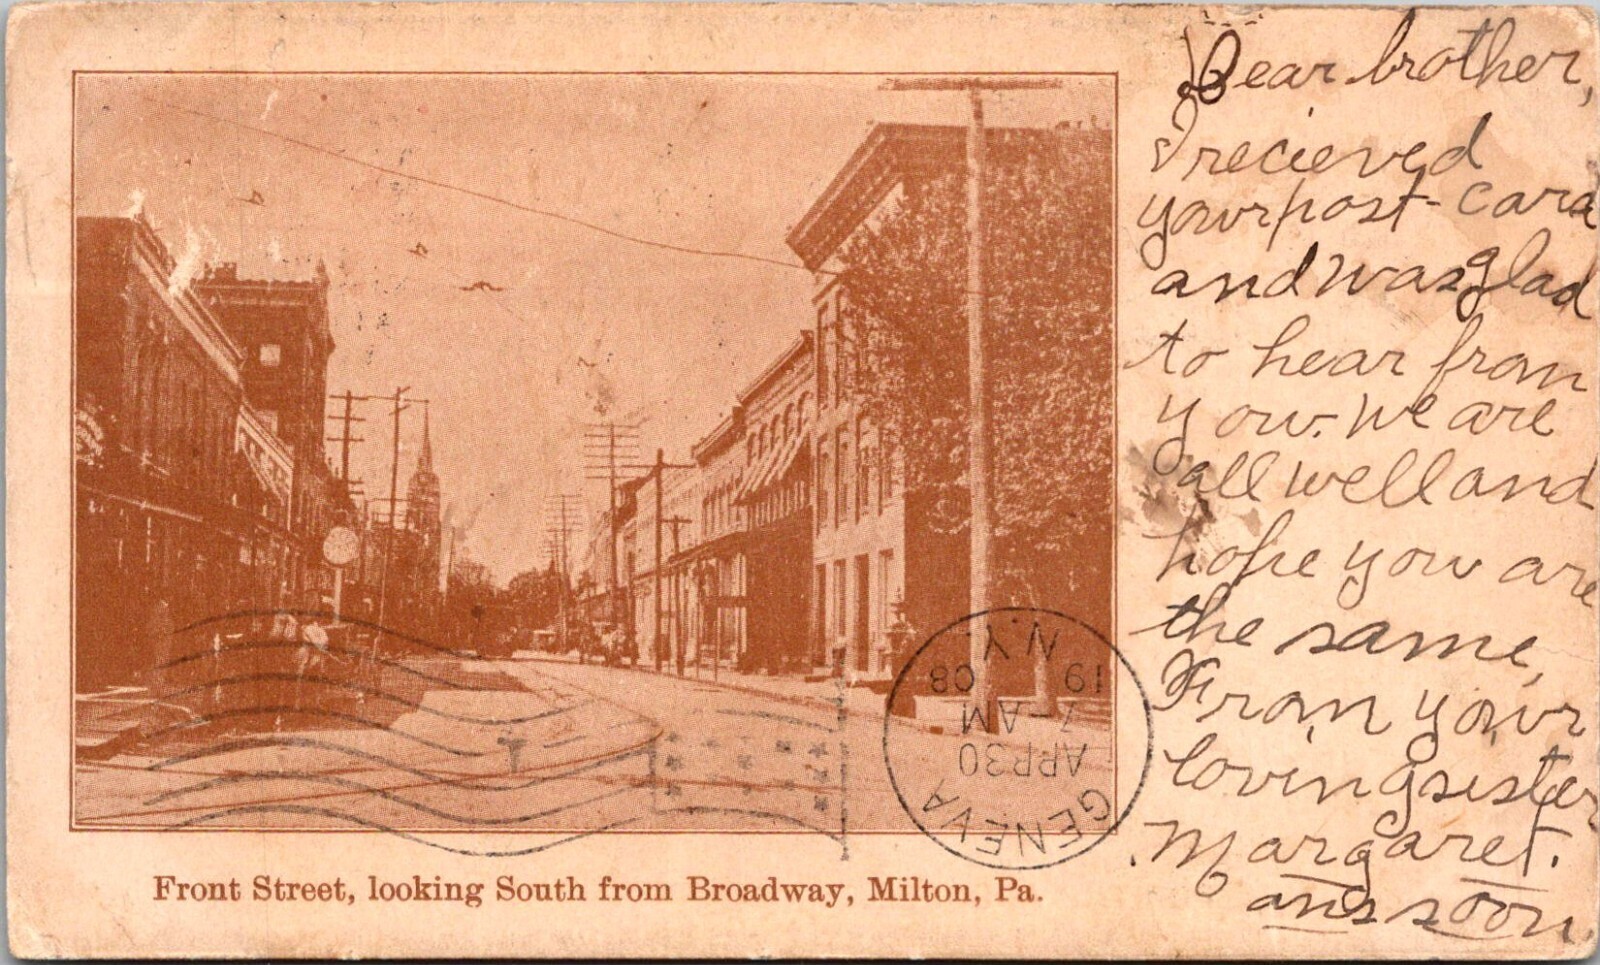 Dear brother,
I recieved
your post-card
and was glad
to hear from
you. We are
all well and
hope you are
the same,
From your
loving sister
Margaret.
ans soon.
GENEVA
APR 30
7-AM
19 08
N.Y.
Front Street, looking South from Broadway, Milton, Pa.